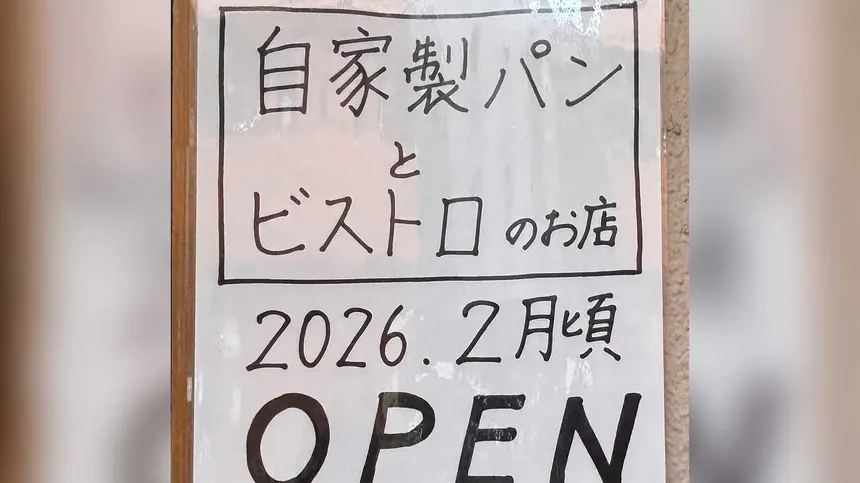 自家製パン
と
ビストロのお店
2026.2月頃
OPEN